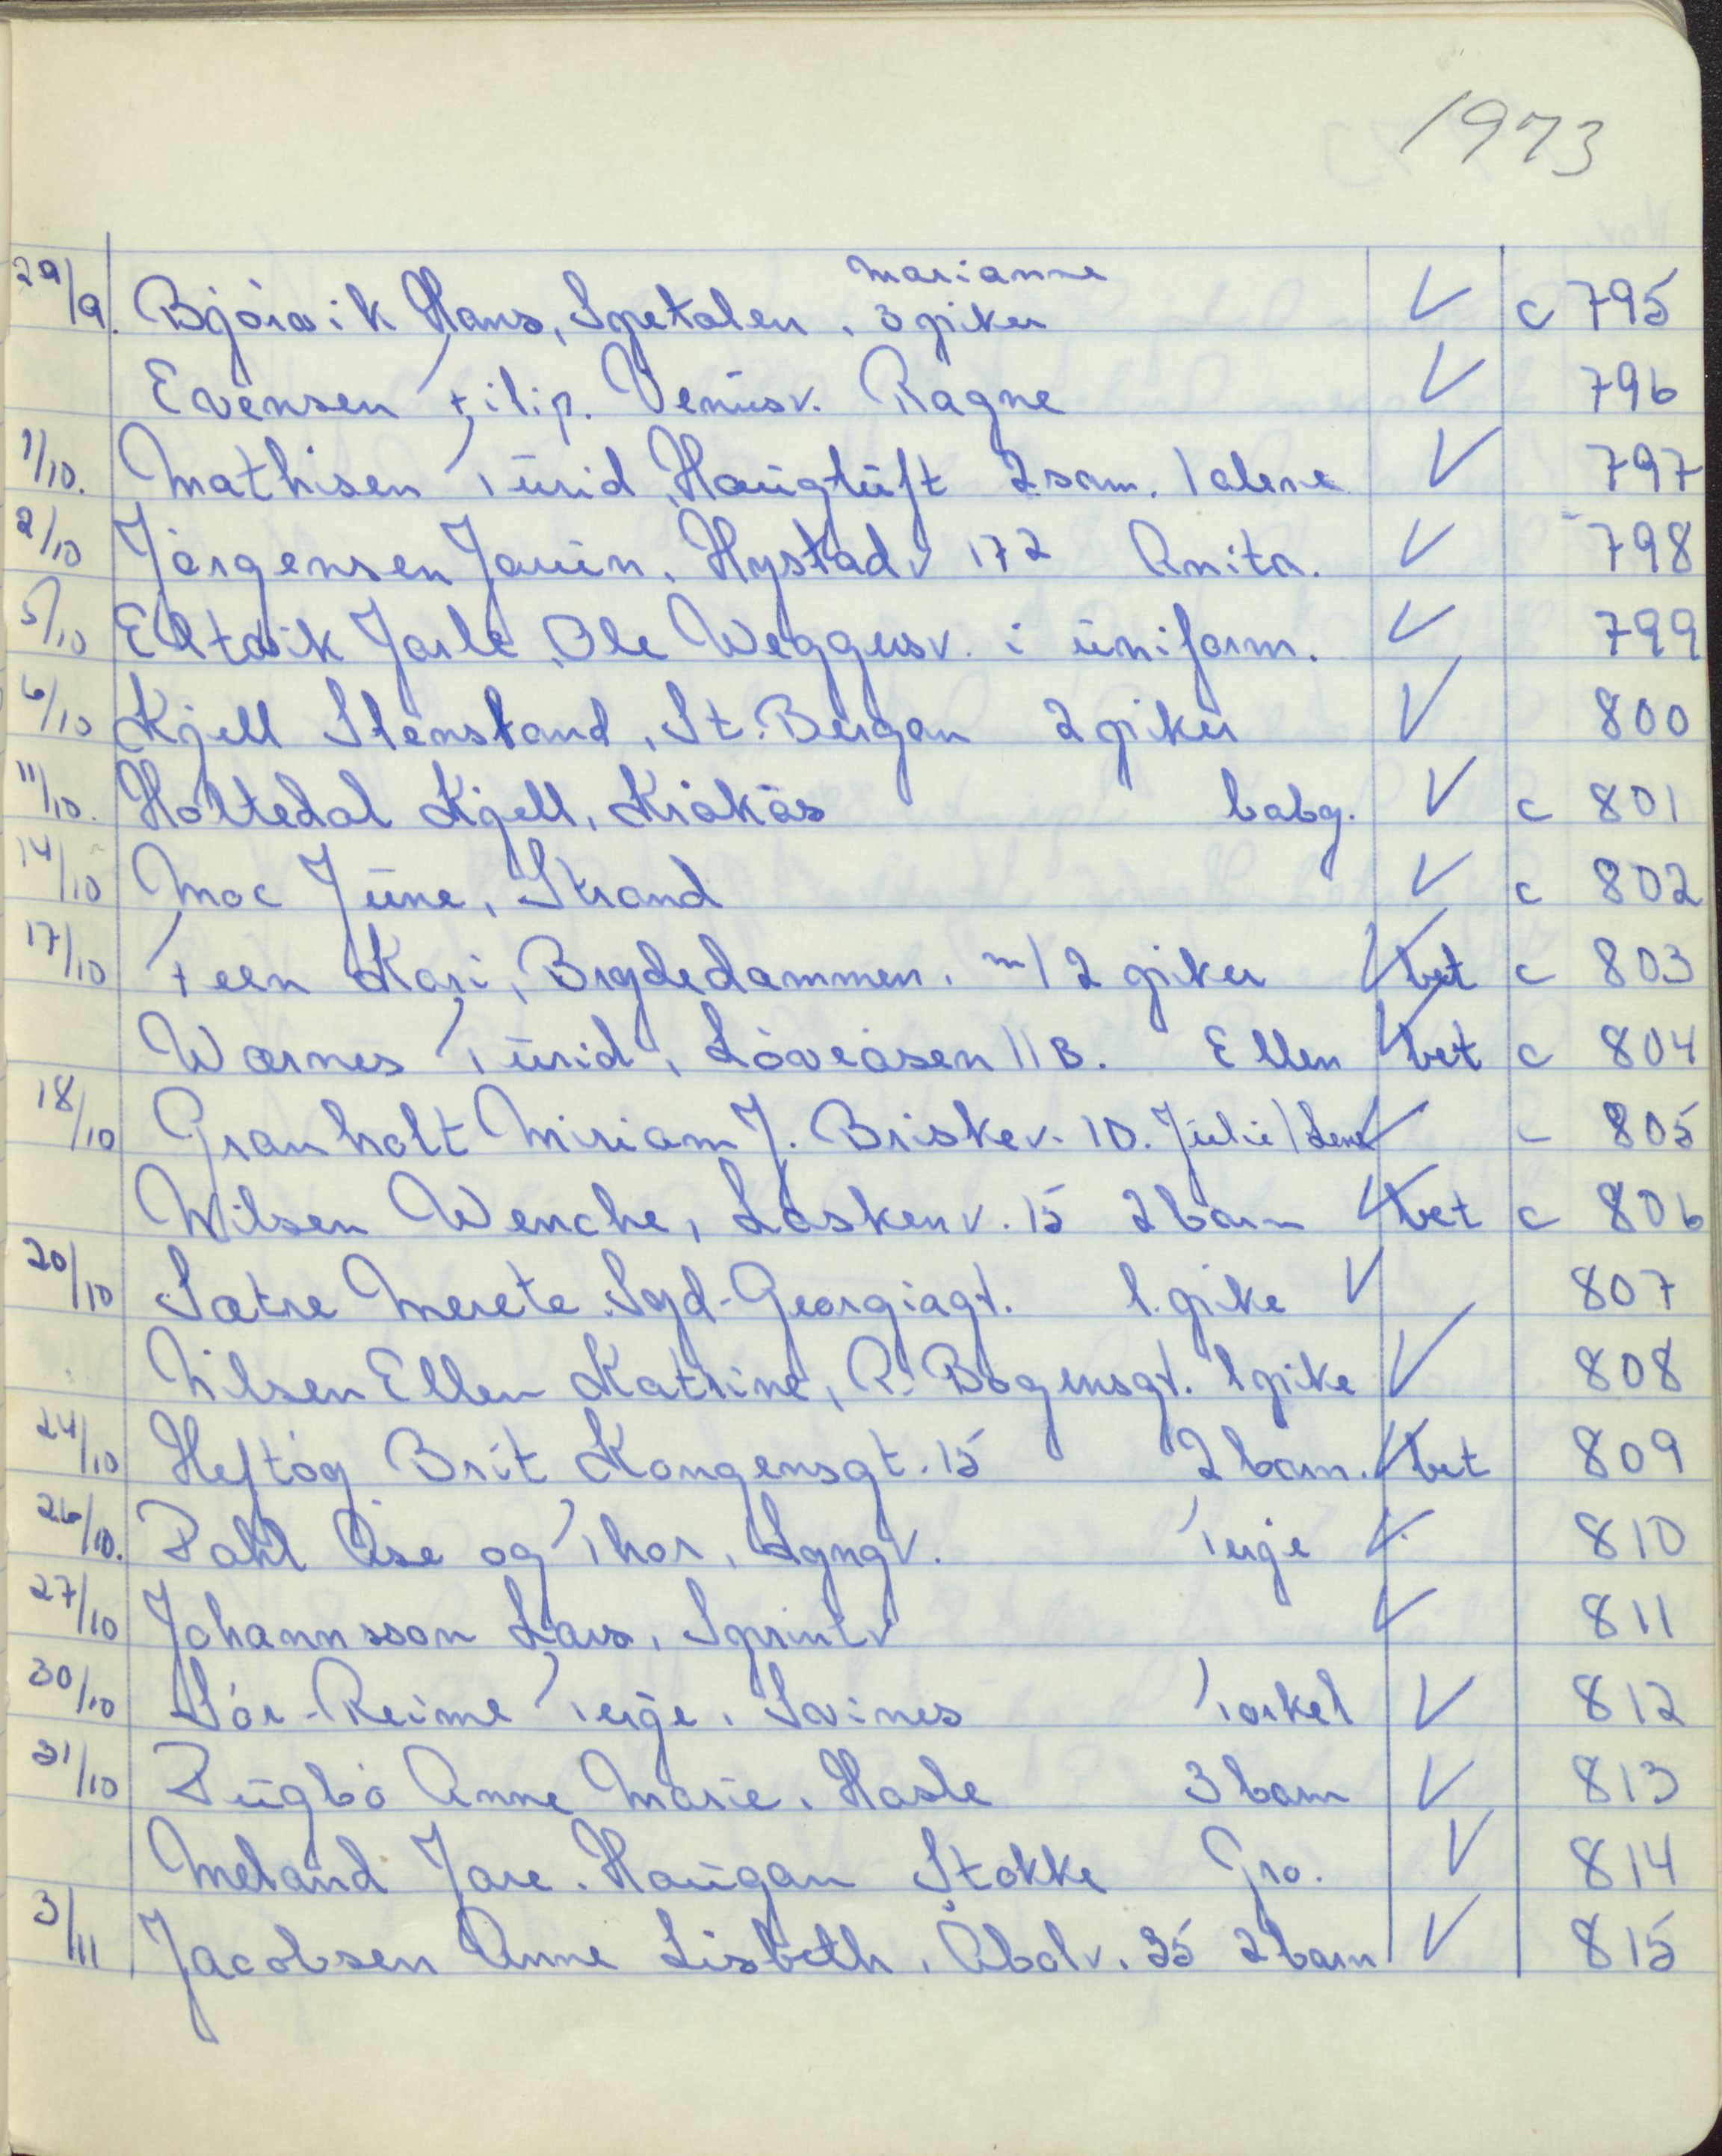 1973
29/9. Bjørvik Hans, Spetalen. 3 piker Marianne V c 795
Evensen Filip. Venusv. Ragne V 796
1/10. Mathisen Turid, Haugtuft 2 sam. 1 alene V 797
2/10 Jørgensen Jauin, Hystadv 172 Anita. V 798
5/10 Eltvik Jarle, Ole Weggersv. i uniform. V 799
6/10 Kjell Stensland, St. Bergan 2 piker V 800
11/10. Holtedal Kjell, Kråkås baby. V c 801
14/10 Moe June, Strand V c 802
17/10 Feen Kari, Brydedammen. m/2 piker V bet c 803
Wærnes Turid, Løveåsen 11 B. Ellen V bet c 804
18/10 Granholt Miriam J. Briskev. 10. Julie/Lene V c 805
Nilsen Wenche, Laskenv. 15 2 barn V bet c 806
20/10 Sætre Merete. Syd-Georgiagt. 1. pike V 807
Nilsen Ellen Katrine, P. Bogensgt. 1 pike V 808
24/10 Heftøy Brit Kongensgt. 15 2 barn. V bet 809
26/10. Dahl Åse og Thor, Lyngv. Terje V 810
27/10 Johannsson Lars, Sprintv V 811
30/10 Sør-Reime Terje, Svines Torkel V 812
31/10 Dugbø Anne Marie. Hasle 3 barn V 813
Meland Jare. Haugan Stokke Gro. V 814
3/11 Jacobsen Anne Lisbeth. Åbolv. 35 2 barn V 815